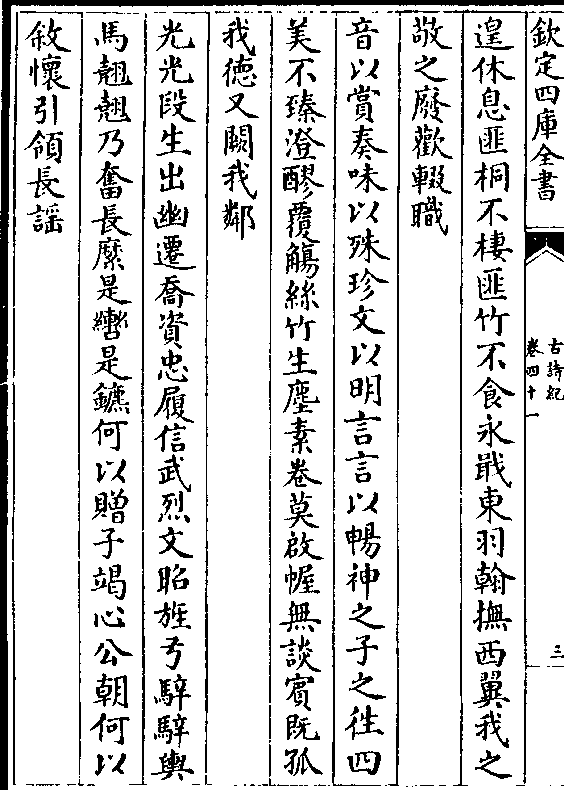 欽定四庫全書
古詩紀
卷四十一
三
遑休息匪桐不棲匪竹不食永戢東羽翰撫西翼我之
敬之廢歡輟職
音以賞奏味以殊珍文以明言言以暢神之子之徃四
美不臻澄醪覆觴絲竹生塵素卷莫啟幄無談賓既孤
我德又闕我鄰
光光段生出幽遷喬資忠履信武烈文昭旌弓騂騂輿
馬翹翹乃奮長縻是轡是鑣何以贈子竭心公朝何以
敘懷引領長謡